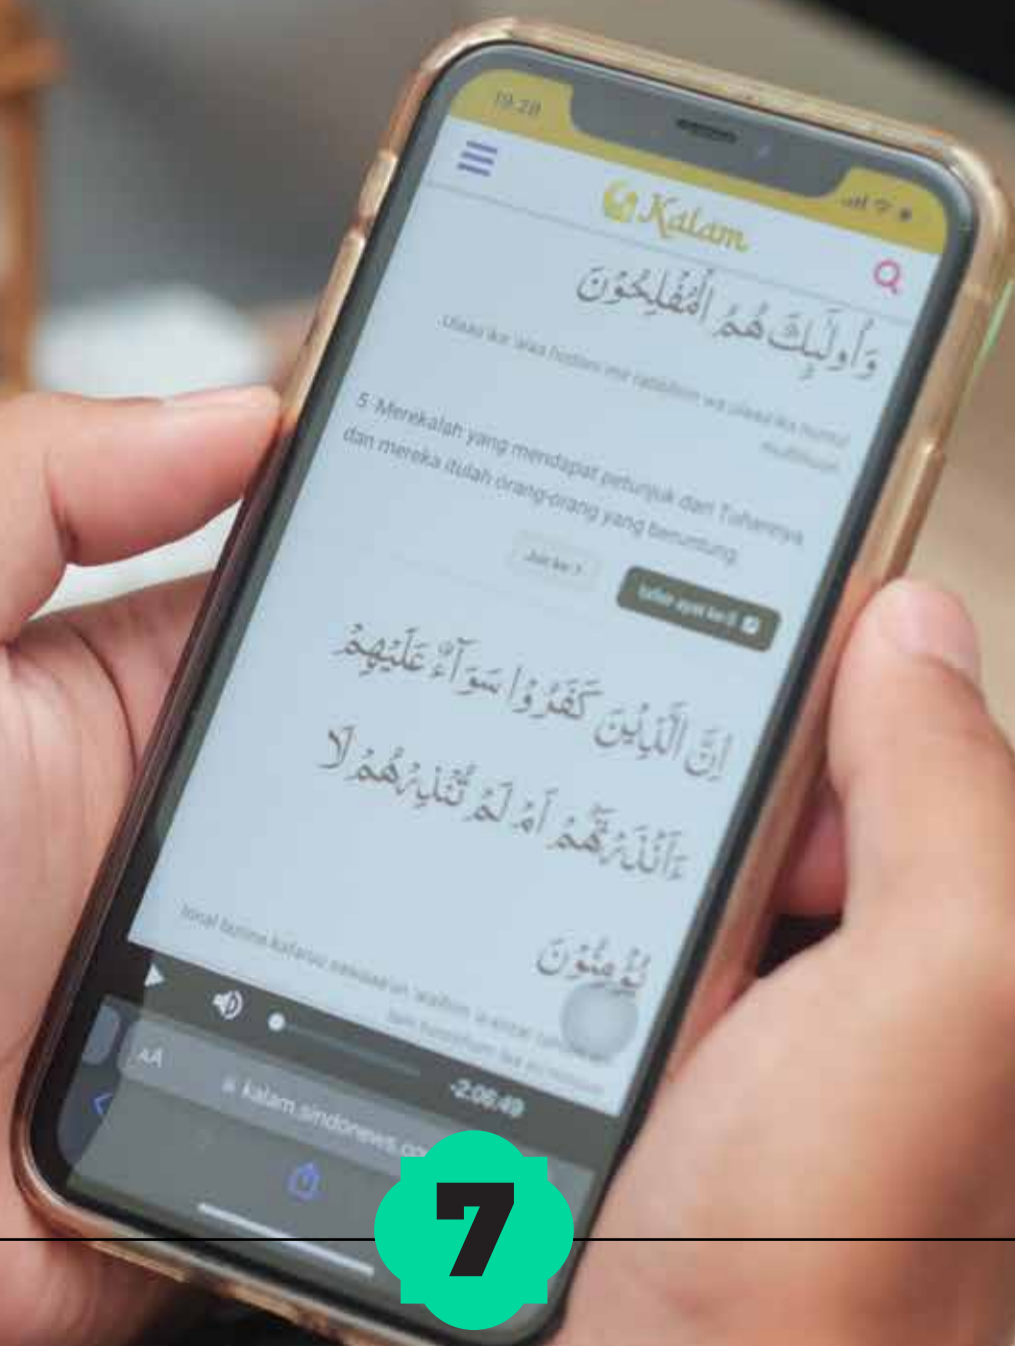 19.28
Kalam
وَاُولٰۤىِٕكَ هُمُ الْمُفْلِحُوْنَ
Ulaaa ika 'alaa hudam mir rabbihim wa ulaaa ika humul
muflihuun
5 -Merekalah yang mendapat petunjuk dari Tuhannya
dan mereka itulah orang-orang yang beruntung.
Juz ke-1
tafsir ayat ke-5
اِنَّ الَّذِيْنَ كَفَرُوْا سَوَاۤءٌ عَلَيْهِمْ
ءَاَنْذَرْتَهُمْ اَمْ لَمْ تُنْذِرْهُمْ لَا
يُؤْمِنُوْنَ
Innal lazina kafaruu sawaaa'un 'alaihim
-2:06:49
AA kalam.sindonews.co
7